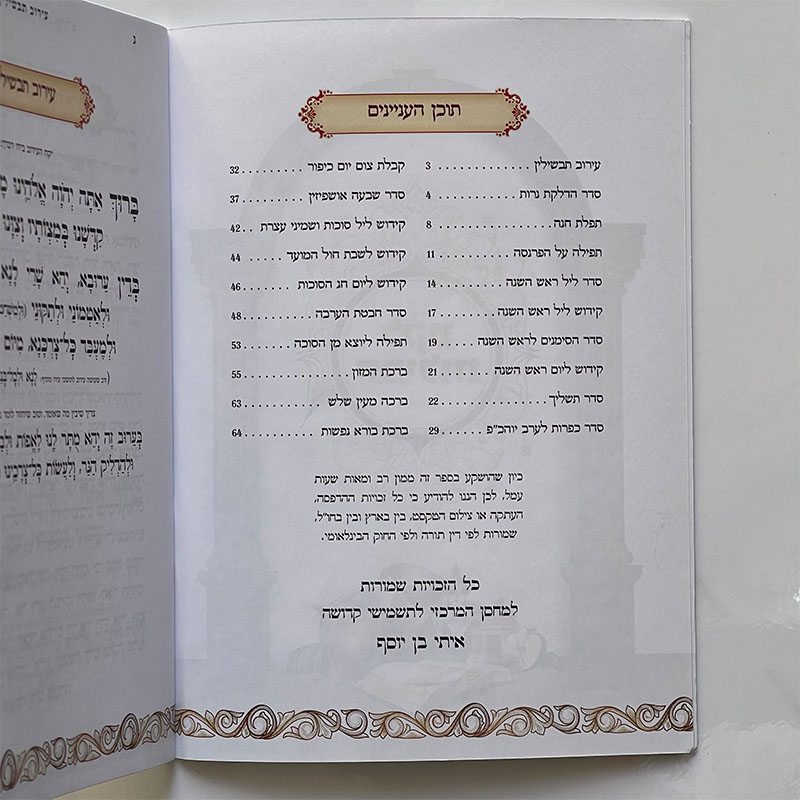 תוכן העניינים
עירוב תבשילין . . . . . . . . . . . . . . 3
סדר הדלקת נרות . . . . . . . . . . . 4
תפלת חנה . . . . . . . . . . . . . . . . . 8
תפילה על הפרנסה . . . . . . . . . . 11
סדר ליל ראש השנה . . . . . . . . . 14
קידוש ליל ראש השנה . . . . . . . 17
סדר הסימנים לראש השנה . . . . . 19
קידוש ליום ראש השנה . . . . . . . 21
סדר תשליך . . . . . . . . . . . . . . . 22
סדר כפרות לערב יוהכ"פ . . . . . . 29
קבלת צום יום כיפור . . . . . . . . . 32
סדר שבעה אושפיזין . . . . . . . . . 37
קידוש ליל סוכות ושמיני עצרת . . 42
קידוש לשבת חול המועד . . . . . 44
קידוש ליום חג הסוכות . . . . . . . 46
סדר חבטת הערבה . . . . . . . . . . 48
תפילה ליוצא מן הסוכה . . . . . . . 53
ברכת המזון . . . . . . . . . . . . . . . 55
ברכה מעין שלש . . . . . . . . . . . . 63
ברכת בורא נפשות . . . . . . . . . . 64
כיון שהושקע בספר זה ממון רב ומאות שעות
עמל, לכן הננו להודיע כי כל זכויות ההדפסה,
העתקה או צילום הטקסט, בין בארץ ובין בחו"ל,
שמורות לפי דין תורה ולפי החוק הבינלאומי.
כל הזכויות שמורות
למחסן המרכזי לתשמישי קדושה
איתי בן יוסף
ג
בָּרוּךְ אַתָּה יְהֹוָה אֱלֹהֵינוּ
קִדְּשָׁנוּ בְּמִצְוֹתָיו וְצִוָּנוּ
בְּדֵין עֵרוּבָא, יְהֵא שָׁרֵי לָנָא
וּלְאַטְמוֹנֵי וּלְתַקּוֹנֵי
וּלְמֶעְבַּד כָּל־צָרְכָּנָא, מִיּוֹם
בְּעֵרוּב זֶה יְהֵא מֻתָּר לָנוּ לֶאֱפוֹת
וּלְהַדְלִיק הַנֵּר, וְלַעֲשׂוֹת כָּל־צְרָכֵינוּ